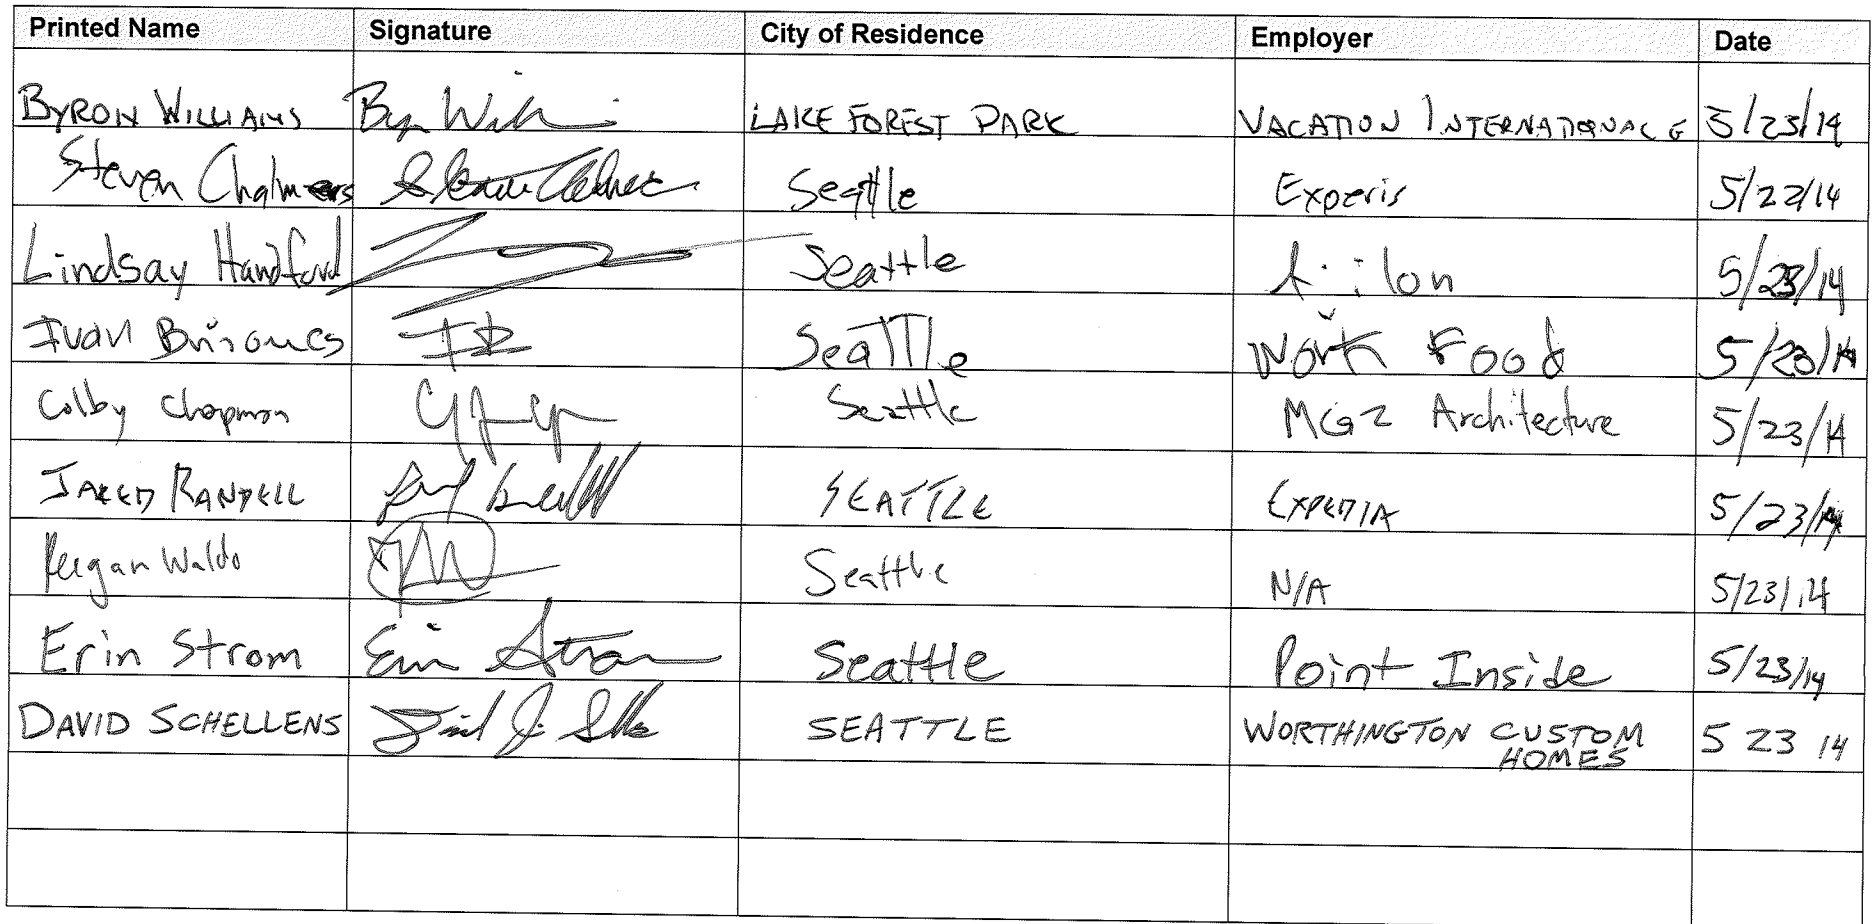 Printed Name Signature City of Residence Employer Date
BYRON WILLIAMS LAKE FOREST PARK VACATION INTERNATIONALE 5/23/14
Steven Chalmers Seattle Experis 5/22/14
Lindsay Seattle 5/23/14
Ivan Seattle Work Food 5/23/14
Colby Chapman Seattle Architecture 5/23/14
JARED RANDELL SEATTLE EXPEDIA 5/23/14
Keegan Waldo Seattle N/A 5/23/14
Erin Strom Erin Strom Seattle Point Inside 5/23/14
DAVID SCHELLENS SEATTLE WORTHINGTON CUSTOM 5 23 14
HOMES